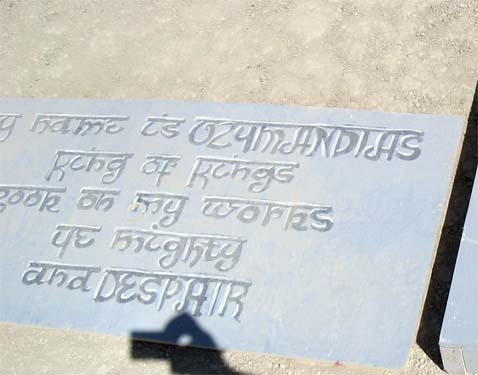 y name is OZYMANDIAS
King of Kings
Look on my works
ye mighty
and DESPAIR